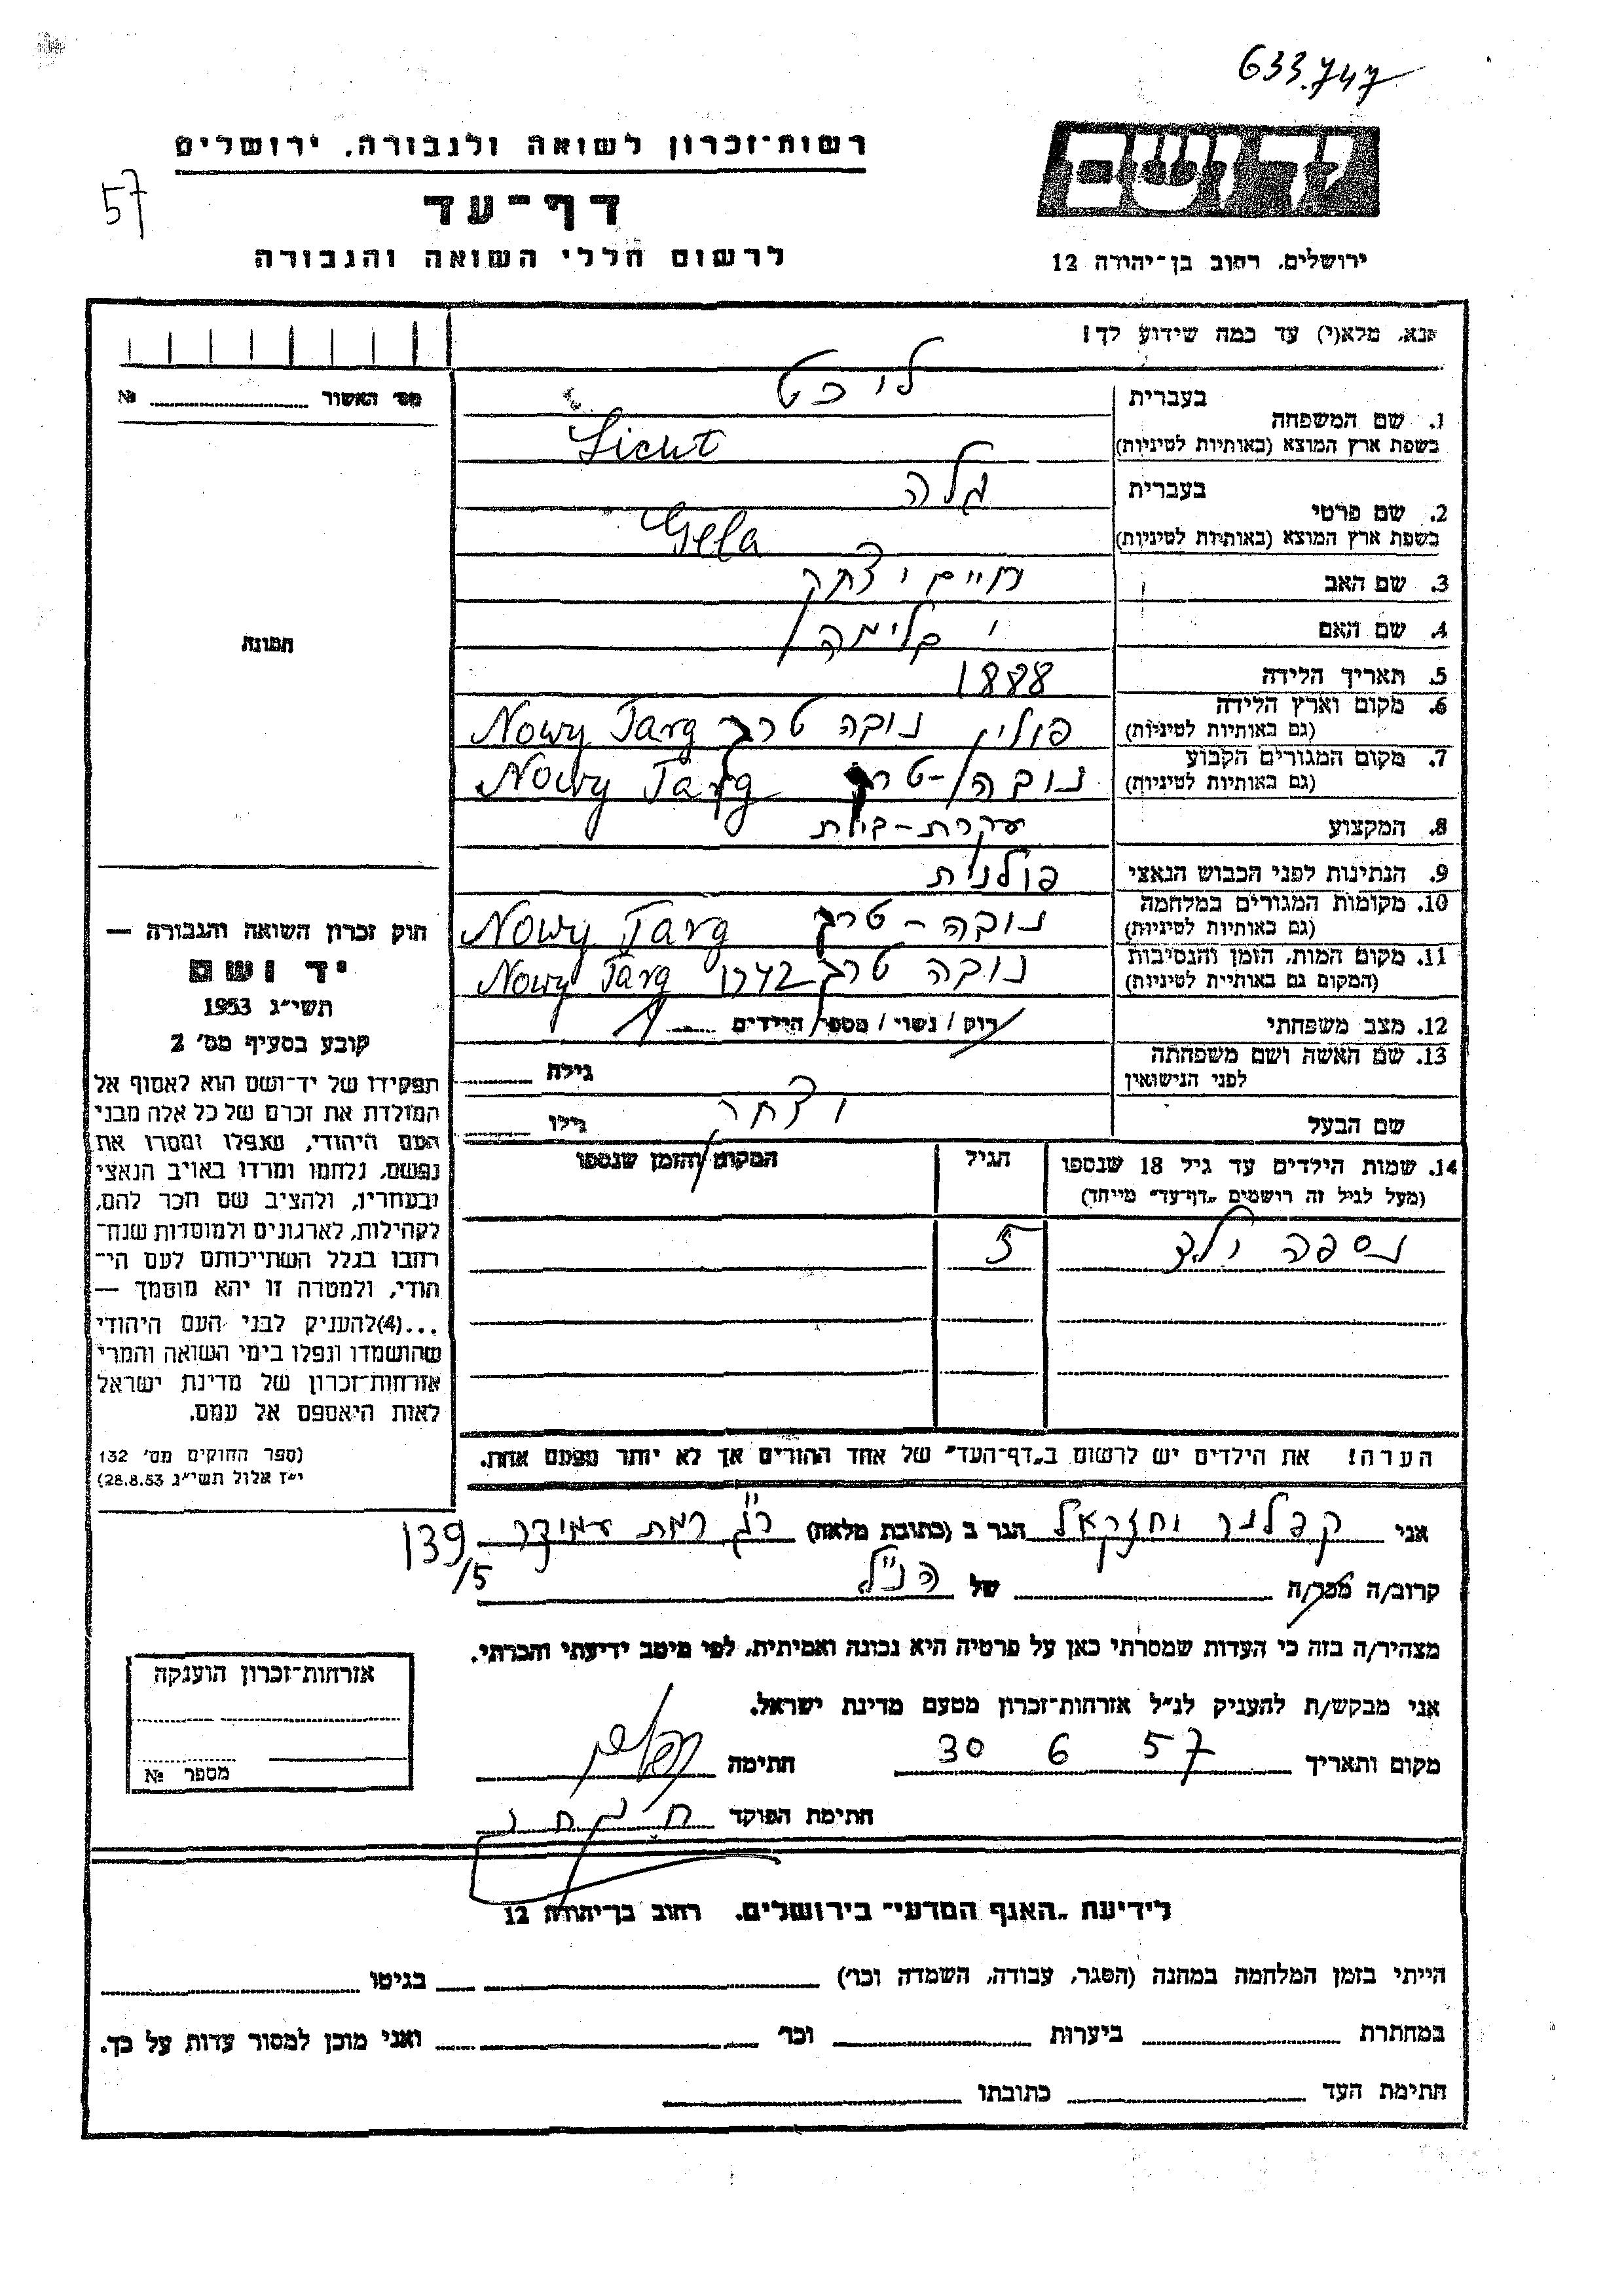 633.747
רשות־זכרון לשואה ולגבורה, ירושלים
57
דף־עד
לרשום חללי השואה והגבורה
יד ושם
ירושלים, רחוב בן־יהודה 12
אנא, מלא(י) עד כמה שידוע לך!
מס' האשור №
בעברית
ליכט
1. שם המשפחה
בשפת ארץ המוצא (באותיות לטיניות)
Licht
בעברית
גלה
2. שם פרטי
בשפת ארץ המוצא (באותיות לטיניות)
Gela
3. שם האב
חיים יצחק
4. שם האם
5. תאריך הלידה
1888
6. מקום וארץ הלידה
(גם באותיות לטיניות)
פולין נובה טרג Nowy Targ
7. מקום המגורים הקבוע
(גם באותיות לטיניות)
נובה-טרג Nowy Targ
8. המקצוע
עקרת-בית
9. הנתינות לפני הכבוש הנאצי
פולנית
10. מקומות המגורים במלחמה
(גם באותיות לטיניות)
נובה-טרג Nowy Targ
11. מקום המות, הזמן והנסיבות
(המקום גם באותיית לטיניות)
נובה טרג 1942 Nowy Targ
12. מצב משפחתי
רוק/ נשוי/ מספר הילדים
13. שם האשה ושם משפחתה
לפני הנישואין
גילה
שם הבעל
יצחק
גילו
תמונה
חוק זכרון השואה והגבורה —
יד ושם
תשי״ג 1953
קובע בסעיף מס׳ 2
תפקידו של יד־ושם הוא לאסוף אל
המולדת את זכרם של כל אלה מבני
העם היהודי, שנפלו ומסרו את
נפשם, נלחמו ומרדו באויב הנאצי
ובעוזריו, ולהציב שם וזכר להם,
לקהילות, לארגונים ולמוסדות שנח־
רחבו בגלל השתייכותם לעם הי־
הודי, ולמטרה זו יהא מוסמך —
...(4)להעניק לבני העם היהודי
שהושמדו ונפלו בימי השואה והמרי
אזרחות־זכרון של מדינת ישראל
לאות היאספם אל עמם.
(ספר החוקים מס׳ 132
י״ז אלול תשי״ג 28.8.53)
14. שמות הילדים עד גיל 18 שנספו
(מעל לגיל זה רושמים „דף־עד״ מיוחד)
הגיל
המקום והזמן שנספו
נספה ילד
5
הערה! את הילדים יש לרשום ב„דף־העד״ של אחד ההורים אך לא יותר מפעם אחת.
אני קפלנר יחזקאל הגר ב (כתובת מלאה) ר״ג רמת עמידר 139/5
קרוב/ה מכר/ה של הנ״ל
מצהיר/ה בזה כי העדות שמסרתי כאן על פרטיה היא נכונה ואמיתית, לפי מיטב ידיעתי והכרתי.
אני מבקש/ת להעניק לנ״ל אזרחות־זכרון מטעם מדינת ישראל.
מקום ותאריך 30 6 57 חתימה
חתימת הפוקד
אזרחות־זכרון הוענקה
מספר №
לידיעת „האגף המדעי״ בירושלים. רחוב בן־יהודה 12
הייתי בזמן המלחמה במחנה (הסגר, עבודה, השמדה וכו׳) בגיטו
במחתרת ביערות וכו׳ ואני מוכן למסור עדות על כך.
חתימת העד כתובתו